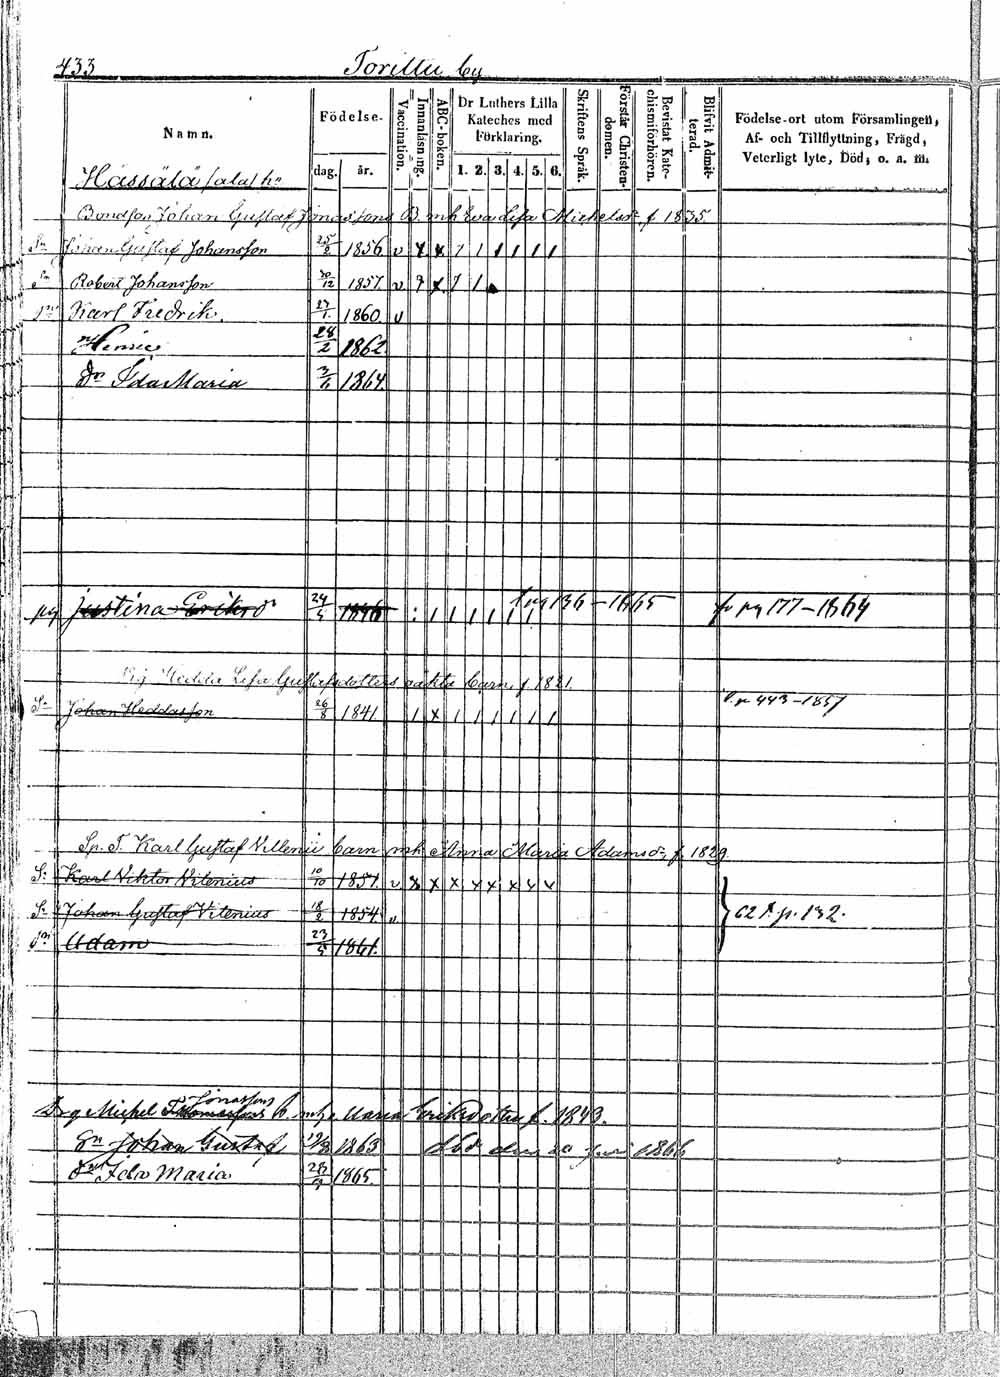 433 Torittu by
Namn.
Födelse-
dag. år.
Vaccination.
Innanläsning.
ABC-boken.
Dr Luthers Lilla Kateches med Förklaring.
1. 2. 3. 4. 5. 6.
Skriftens Språk.
Förstår Christendomen.
Bevistat Katechismiförhören.
Blifvit Admitterad.
Födelse-ort utom Församlingen, Af- och Tillflyttning, Frägd, Veterligt lyte, Död, o. a. m.
Hässälä /ala/ hn
Bondson Johan Gustaf Jonassons B. mh Eva Lisa Michelsdr f 1835
Sn Johan Gustaf Johansson 25/2 1856 v x x 1 1 1 1 1 1
Sn Robert Johansson 30/12 1857. v 9 x 1 1
Karl Fredrik. 27/1 1860 v
28/2 1862
Dr Ida Maria 3/11 1864
pig Justina Eriksdr 1846 : 1 1 1 1 1 1 136 – 1865 fr pg 177 – 1864
Hedda Lisa Gustafsdotters oäkta barn, f 1821.
Sn Johan Heddasson 26/8 1841. 1 x 1 1 1 1 1 1 443 – 1857
Sp. T. Karl Gustaf Villenii barn mh Anna Maria Adamsdr f 1829
Sn Karl Viktor Vilenius 10/10 1851. v x x x x x x x x
Sn Johan Gustaf Vilenius 18/2 1854. „ 62 T. p. 132.
Sn Adam 23/5 1861.
Drg Michel Thomassons Jonassons b. mh. Maria Eriksdotter f. 1843.
Sn Johan Gustaf 19/3 1863 död den 20 Juni 1866
Dr Ida Maria 28/9 1865